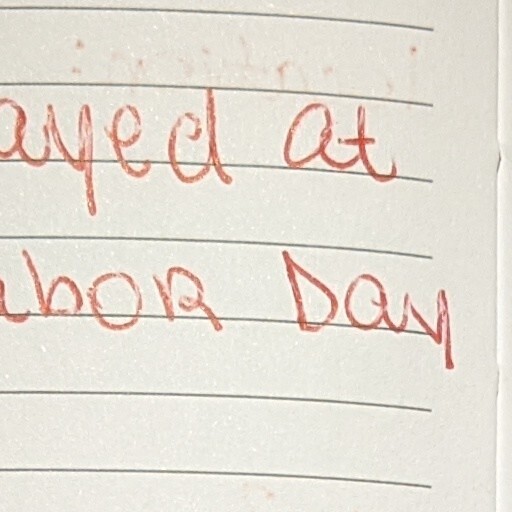 ayed at
abor Day